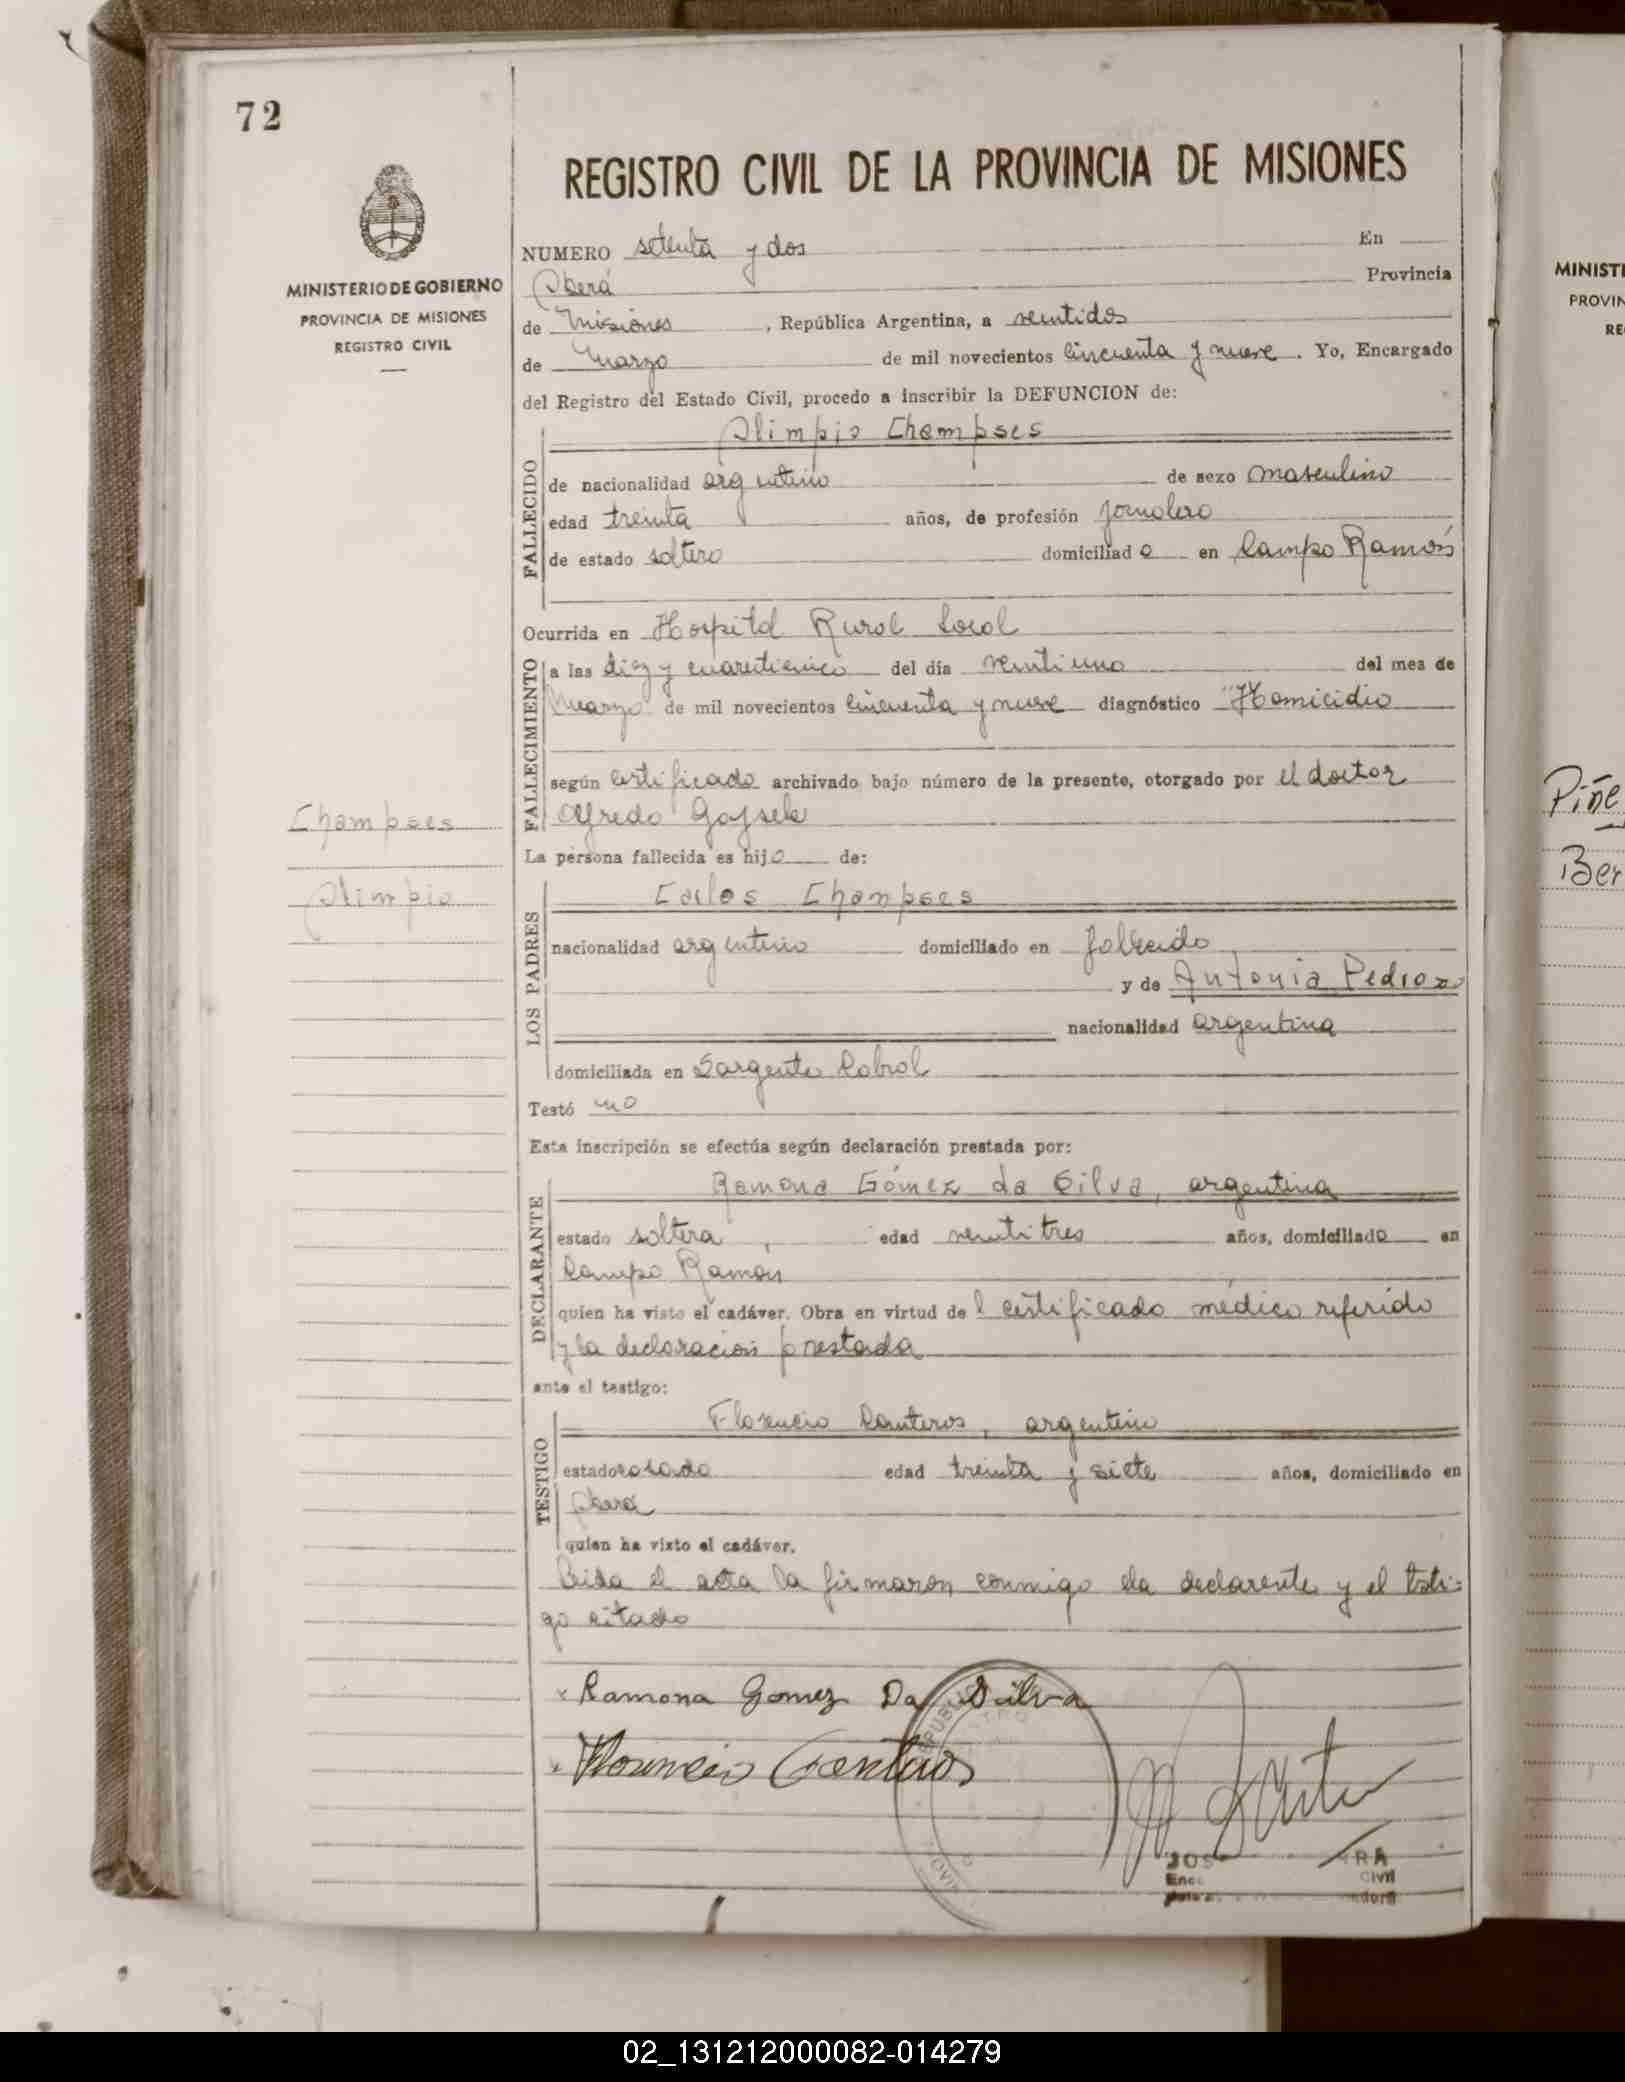 72
REGISTRO CIVIL DE LA PROVINCIA DE MISIONES
MINISTERIO DE GOBIERNO
PROVINCIA DE MISIONES
REGISTRO CIVIL
NUMERO setenta y dos En
Oberá Provincia
de Misiones, República Argentina, a veintidos
de Marzo de mil novecientos cincuenta y nueve. Yo, Encargado
del Registro del Estado Civil, procedo a inscribir la DEFUNCION de:
Olimpio Champses
FALLECIDO
de nacionalidad argentino de sexo masculino
edad treinta años, de profesión jornalero
de estado soltero domiciliado en Campo Ramón
Ocurrida en Hospital Rural Local
FALLECIMIENTO
a las diez y cuarenticinco del día veintiuno del mes de
Marzo de mil novecientos cincuenta y nueve diagnóstico "Homicidio
según certificado archivado bajo número de la presente, otorgado por el doctor
Alfredo
Champses
Olimpio
La persona fallecida es hijo de:
LOS PADRES
Carlos Champses
nacionalidad argentino domiciliado en fallecido
y de Antonia Pedrozo
nacionalidad argentina
domiciliada en Sargento Cabral
Testó no
Esta inscripción se efectúa según declaración prestada por:
DECLARANTE
Ramona Gómez da Silva, argentina
estado soltera, edad veintitres años, domiciliado en
Campo Ramón
quien ha visto el cadáver. Obra en virtud del certificado médico referido
y la declaración prestada
ante el testigo:
TESTIGO
Florencio Canteros, argentino
estado casado edad treinta y siete años, domiciliado en
Oberá
quien ha visto el cadáver.
Leida el acta la firmaron conmigo la declarante y el testi-
go citado
Ramona Gomez Da Silva
Florencio Canteros
MINISTE
PROVIN
RE
Piñe
Ber
02_131212000082-014279